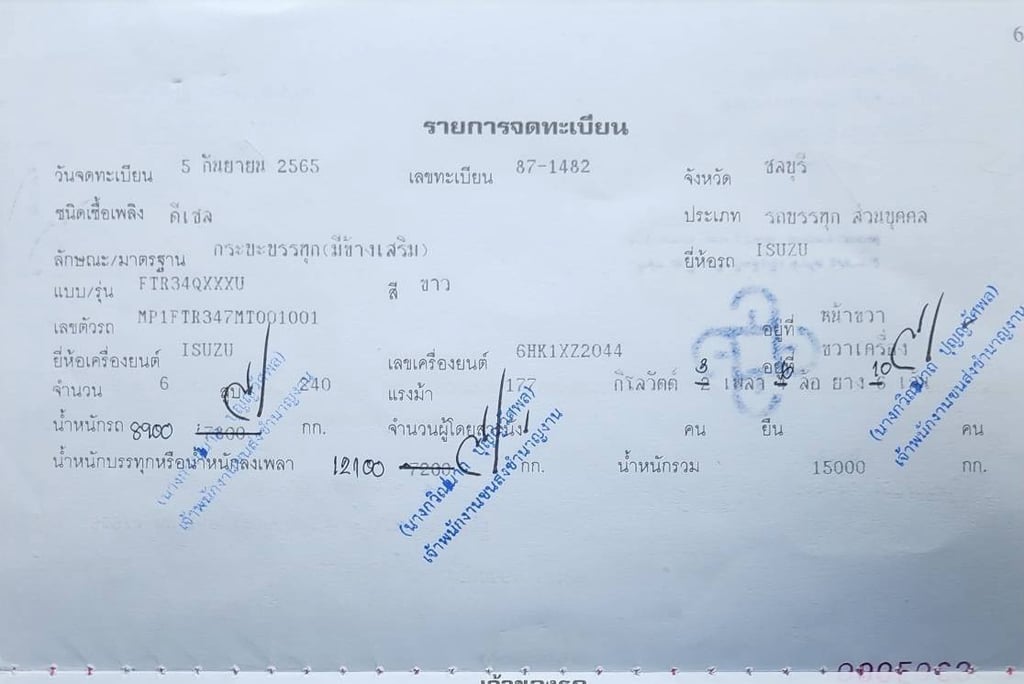 6
รายการจดทะเบียน
วันจดทะเบียน 5 กันยายน 2565 เลขทะเบียน 87-1482 จังหวัด ชลบุรี
ชนิดเชื้อเพลิง ดีเซล ประเภท รถบรรทุก ส่วนบุคคล
ลักษณะ/มาตรฐาน กระบะบรรทุก(มีข้างเสริม) ยี่ห้อรถ ISUZU
แบบ/รุ่น FTR34QXXXU สี ขาว
เลขตัวรถ MP1FTR347MT001001 อยู่ที่ หน้าขวา
ยี่ห้อเครื่องยนต์ ISUZU เลขเครื่องยนต์ 6HK1XZ2044 อยู่ที่ ขวาเครื่อง
จำนวน 6 สูบ 240 แรงม้า 177 กิโลวัตต์ 3 2 เพลา ล้อ ยาง 10 6 เส้น
น้ำหนักรถ 8900 7800 กก. จำนวนผู้โดยสาร นั่ง คน ยืน คน
น้ำหนักบรรทุกหรือน้ำหนักลงเพลา 12100 7200 กก. น้ำหนักรวม 15000 กก.
เจ้าพนักงานขนส่งชำนาญงาน
เจ้าพนักงานขนส่งชำนาญงาน
เจ้าพนักงานขนส่งชำนาญงาน
เจ้าของรถ